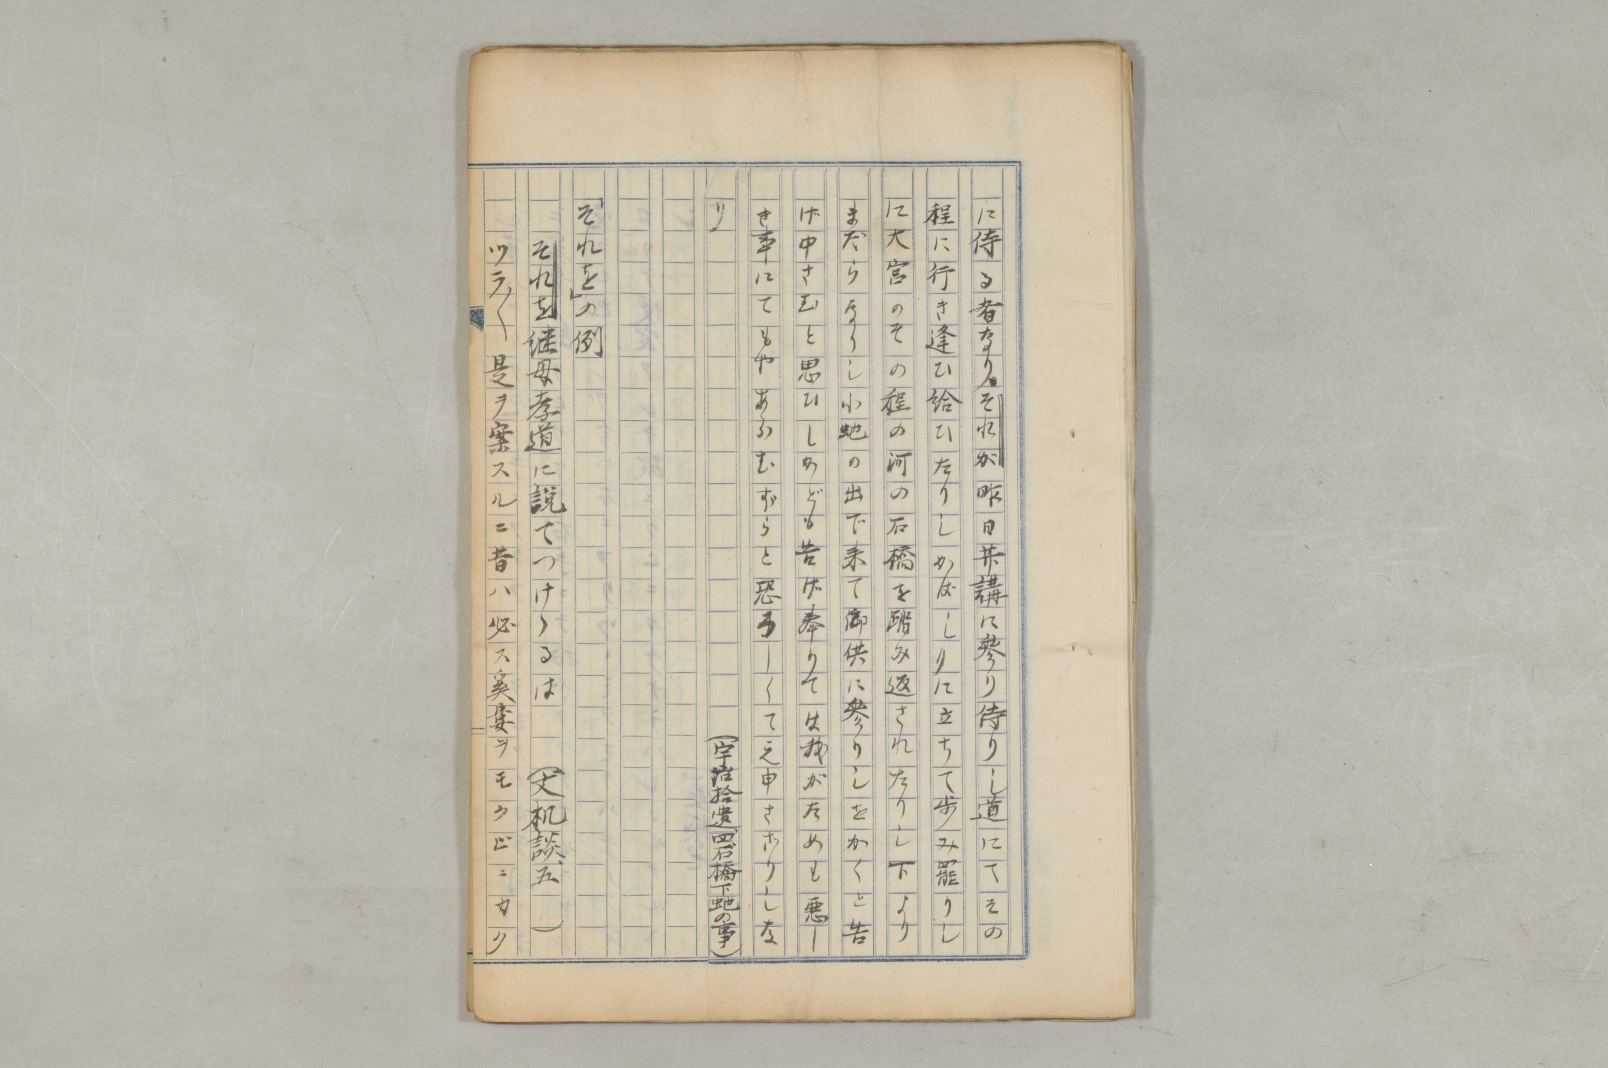 に侍る者なり。それが昨日丼講に參り侍りし道にてその
程に行き逢ひ給ひたりしかばしりに立ちて歩み罷りし
に大宮のその程の河の石橋を踏み返されたりし下より
まだらなりし小虵の出で来て御供に參りしをかくと告
げ申さむと思ひしかども告げ奉りては我がためも悪し
き事にてもやあらむずらと恐ろしくてえ申さゞりしな
り
(宇治拾遺、四、石橋下虵の事)
「それを」の例
それを継母孝道に説てつけらるは　(文机談、五　)
ツラ〱是ヲ案スルニ昔ハ必ス奚婁ヲモクビニカク